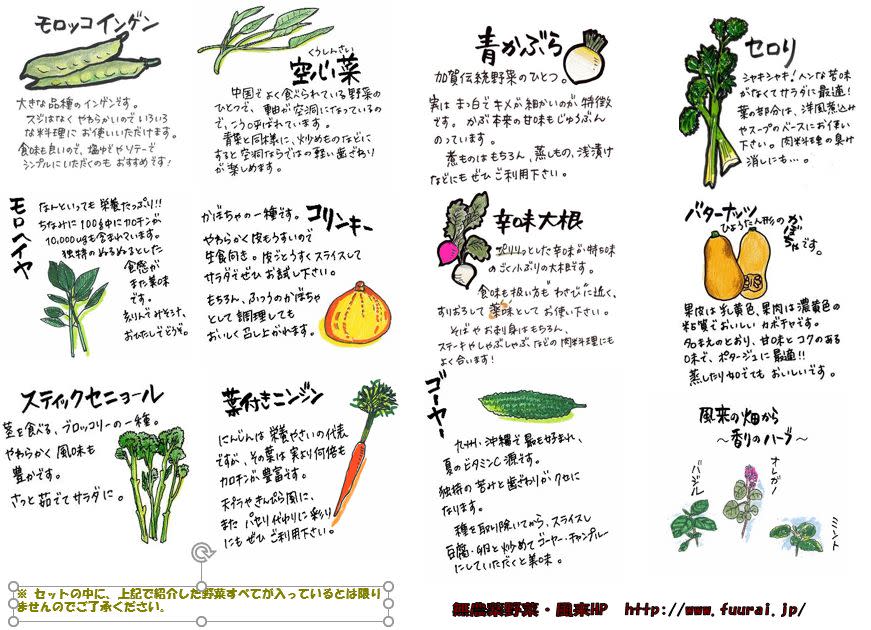 モロッコインゲン
大きな品種のインゲンです。
スジはなくやわらかいのでいろいろ
な料理にお使いいただけます。
食味も良いので、塩ゆでやソテーで
シンプルにいただくのもおすすめです!
くうしんさい
空心菜
中国でよく食べられている野菜の
ひとつで、軸が空洞になっているの
で、こう呼ばれています。
青菜と同様に、炒めものなどに
すると空洞ならではの軽い歯ざわり
が楽しめます。
青かぶら
加賀伝統野菜のひとつ。
実はまっ白でキメが細かいのが特徴
です。かぶ本来の甘味もじゅうぶん
のっています。
煮ものはもちろん、蒸しもの、浅漬け
などにもぜひご利用下さい。
セロリ
シャキシャキ!ヘンな苦味
がなくてサラダに最適!
葉の部分は、洋風煮込み
やスープのベースにお使い
下さい。肉料理の臭け
消しにも…。
モロヘイヤ
なんといっても栄養たっぷり!!
ちなみに100g中にカロチンが
10,000ug も含まれています。
独特のぬるぬるとした
食感が
また美味
です。
刻んでみそ汁、
おひたしでどうぞ。
コリンキー
かぼちゃの一種です。
やわらかく皮もうすいので
生食向き。皮ごとうすくスライスして
サラダでぜひお試し下さい。
もちろん、ふつうのかぼちゃ
として調理しても
おいしく召し上がれます。
辛味大根
ピリリッとした辛味が特味
のごく小ぶりの大根です。
食味も扱い方もわさびに近く、
すりおろして薬味としてお使い下さい。
そばやお刺身はもちろん、
ステーキやしゃぶしゃぶなどの肉料理にも
よく合います!
バターナッツ
ひょうたん形のかぼちゃです。
果皮は乳黄色、果肉は濃黄色の
粘質でおいしいカボチャです。
名まえのとおり、甘味とコクのある
味で、ポタージュに最適!!
蒸したり茹でてもおいしいです。
スティックセニョール
茎を食べる、ブロッコリーの一種。
やわらかく風味も
豊かです。
さっと茹でてサラダに。
葉付きニンジン
にんじんは栄養やさいの代表
ですが、その葉は実より何倍も
カロチンが豊富です。
天プラやきんぴら風に、
またパセリ代わりに彩り
にもぜひご利用下さい。
ゴーヤー
九州・沖縄で最も好まれ、
夏のビタミンC源です。
独特の苦みと歯ざわりがクセに
なります。
種を取り除いてから、スライスし
豆腐・卵と炒めてゴーヤーチャンプルー
にしていただくと美味。
風来の畑から
~香りのハーブ~
バジル
オレガノ
ミント
※ セットの中に、上記で紹介した野菜すべてが入っているとは限り
ませんのでご了承ください。
無農薬野菜・風来HP http://www.fuurai.jp/